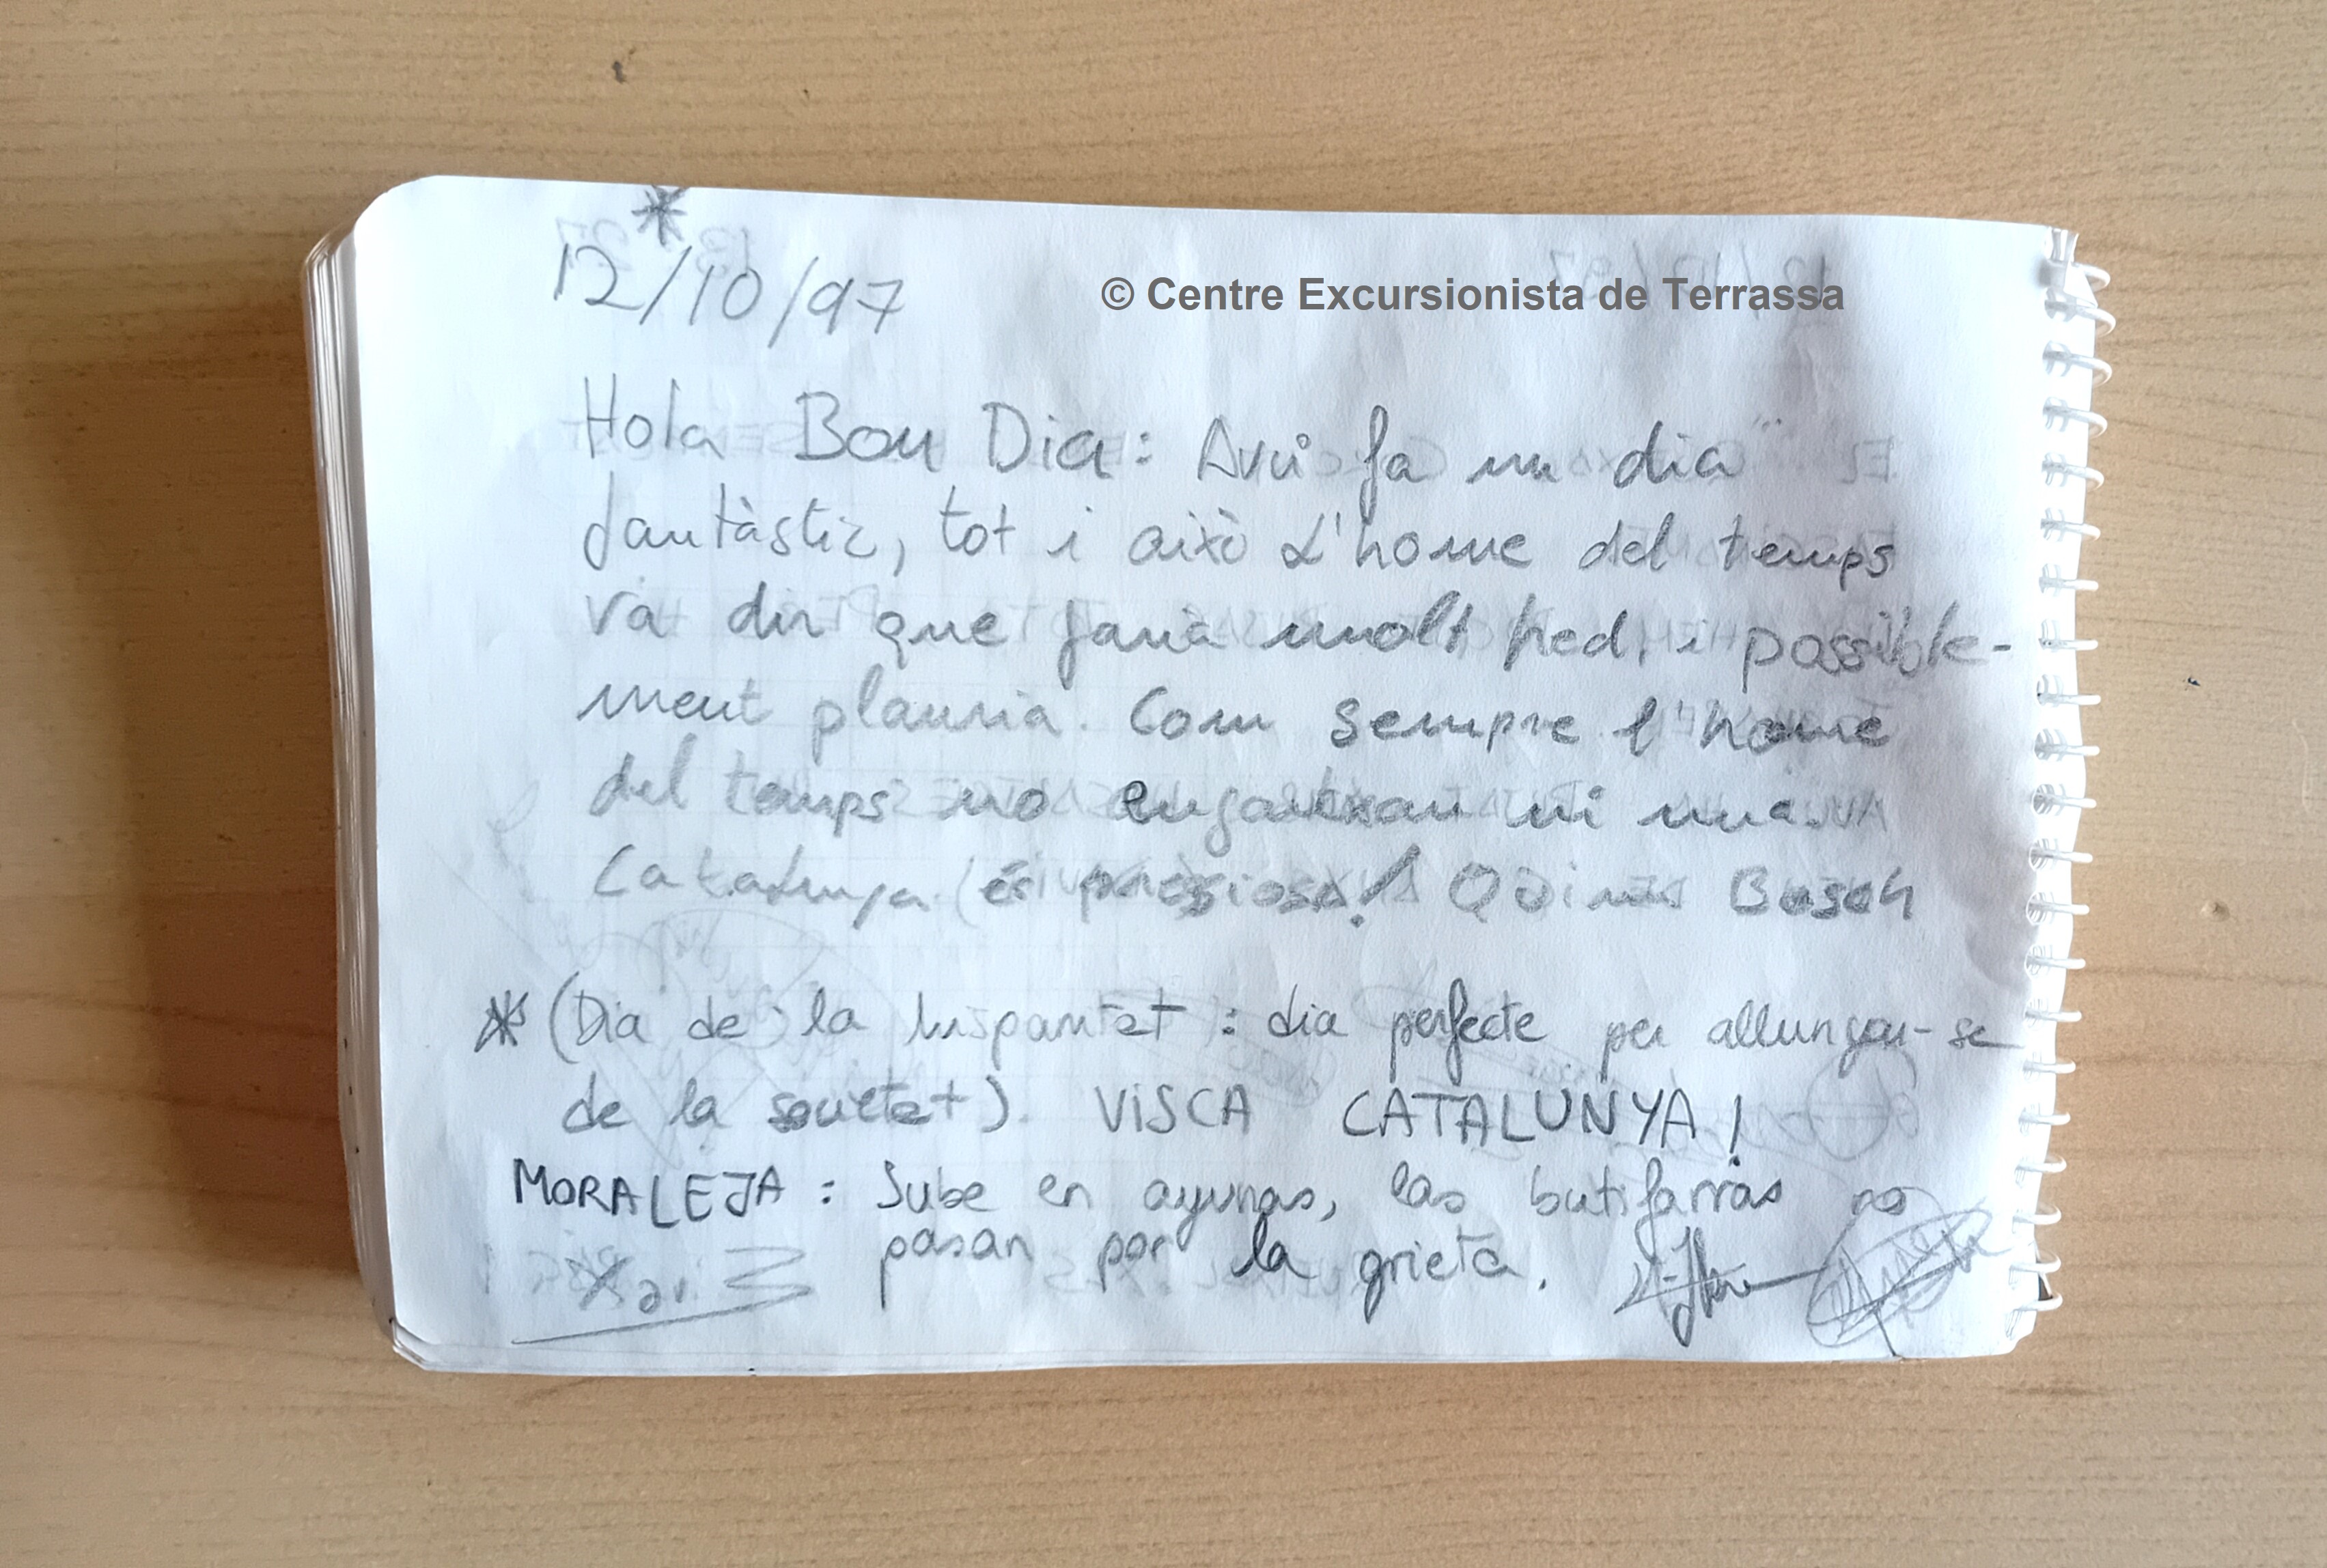 *
12/10/97
© Centre Excursionista de Terrassa
Hola Bon Dia: Avui fa un dia
fantàstic, tot i això L'home del temps
va dir que faria molt fred, i possible-
ment plauria. Com sempre l'home
del temps no engantxan ni una.
Catalunya és presiosa! Quim Bosch
* (Dia de la hispanitat : dia perfecte per allunyar-se
de la societat). VISCA CATALUNYA!
MORALEJA : Sube en ayunas, las butifarras no
pasan por la grieta.
Xavi